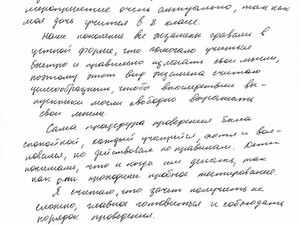 мероприятие очень актуально, так как
моя дочь учится в 8 классе.
Наше поколение все экзамены сдавали в
устной форме, что помогало учиться
быстро и правильно излагать свои мысли,
поэтому этот вид экзамена считаю
целесообразным, чтобы впоследствие вы-
пускники могли свободно выражать
свои мысли.
Сама процедура проведения была
спокойной, каждый учащийся, хотя и вол-
новался, но действовал по правилам. Дети
понимали, что и когда им делать, так
как они проходили пробное тестирование.
Я считаю, что зачет получить не
сложно, главное готовиться и соблюдать
порядок проведения.